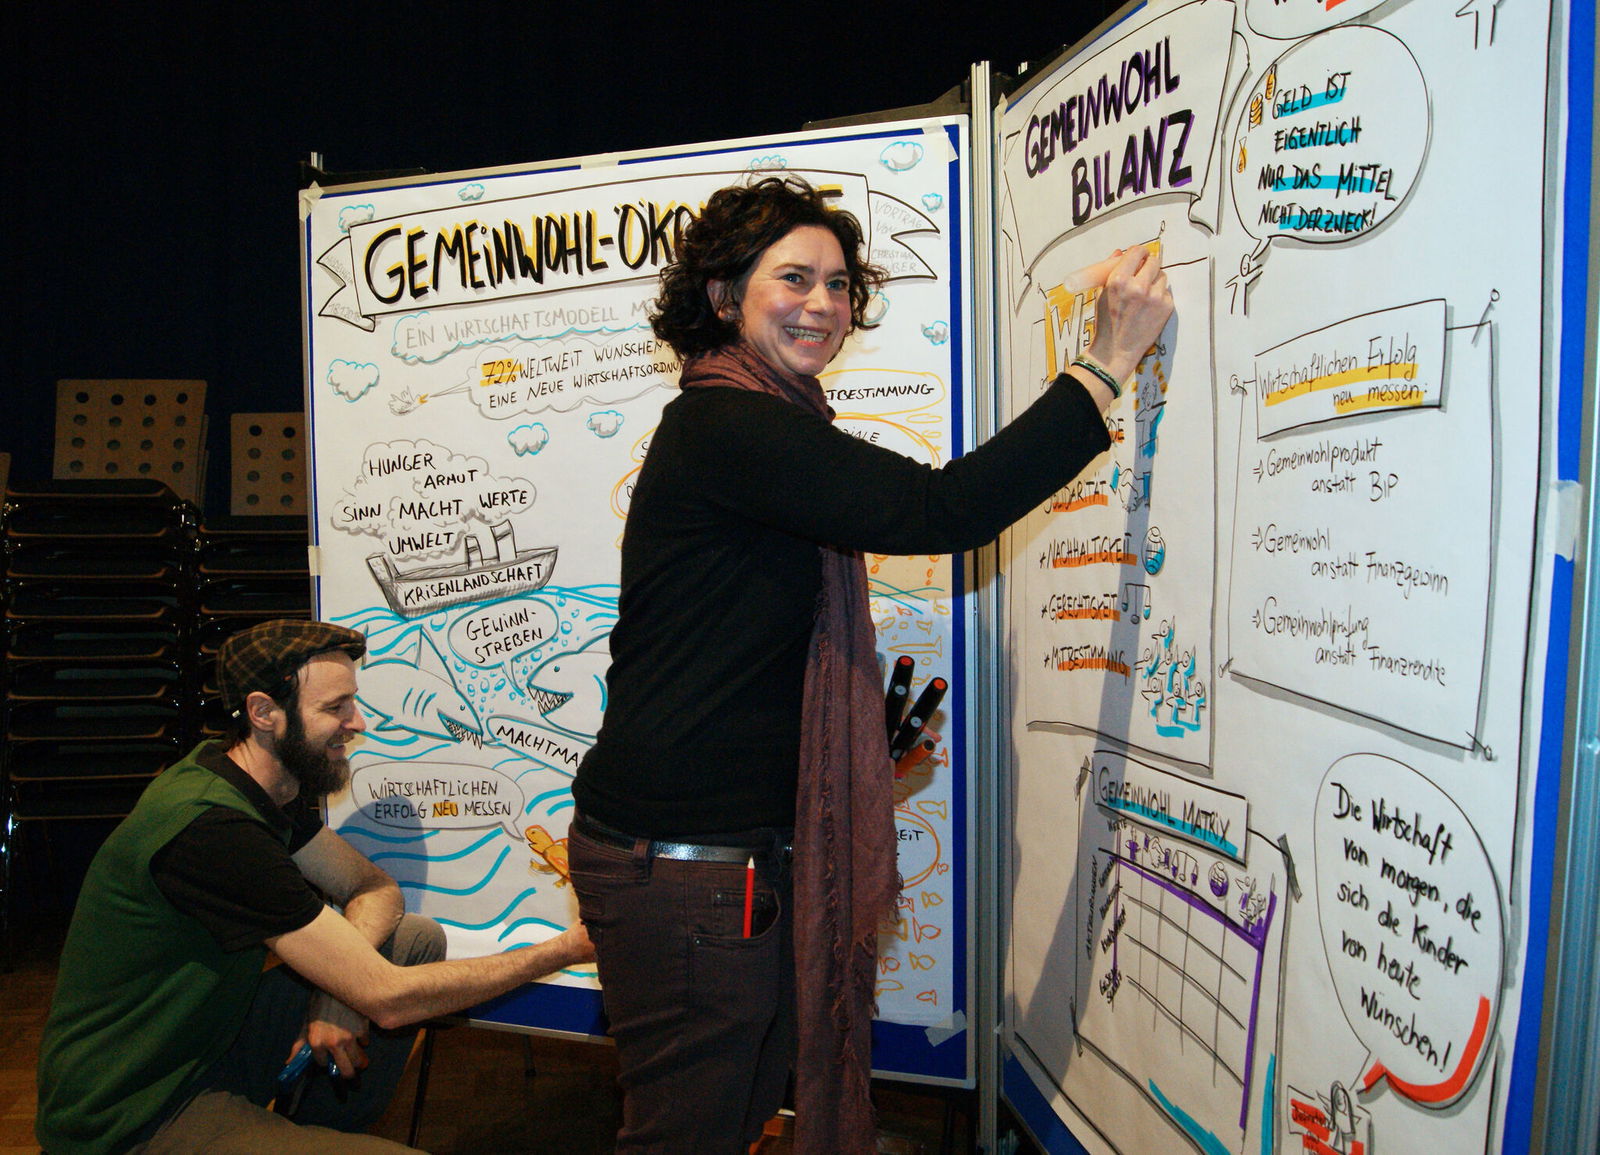 GEMEINWOHL-ÖKO
VORTRAG
VON
CHRISTIAN
EIN WIRTSCHAFTSMODELL
72% WELTWEIT WÜNSCHEN
NEUE WIRTSCHAFTSORDNU
EINE
HUNGER
ARMUT
SINN MACHT WERTE
UMWELT
KRISENLANDSCHAFT
GEWINN-
STREBEN
MACHTMA
WIRTSCHAFTLICHEN
ERFOLG NEU MESSEN
TBESTIMMUNG
GEMEINWOHL
BILANZ
WE
*NACHHALTIGKEIT
*GERECHTIGKEIT
*MITBESTIMMUNG
GELD IST
EIGENTLICH
NUR DAS MITTEL
NICHT DER ZWECK!
Wirtschaftlichen Erfolg
neu messen:
⇒ Gemeinwohlprodukt
anstatt BIP
⇒ Gemeinwohl
anstatt Finanzgewinn
⇒ Gemeinwohlprüfung
anstatt Finanzrendite
GEMEINWOHL MATRIX
WERTE
Die Wirtschaft
von morgen, die
sich die Kinder
von heute
wünschen!